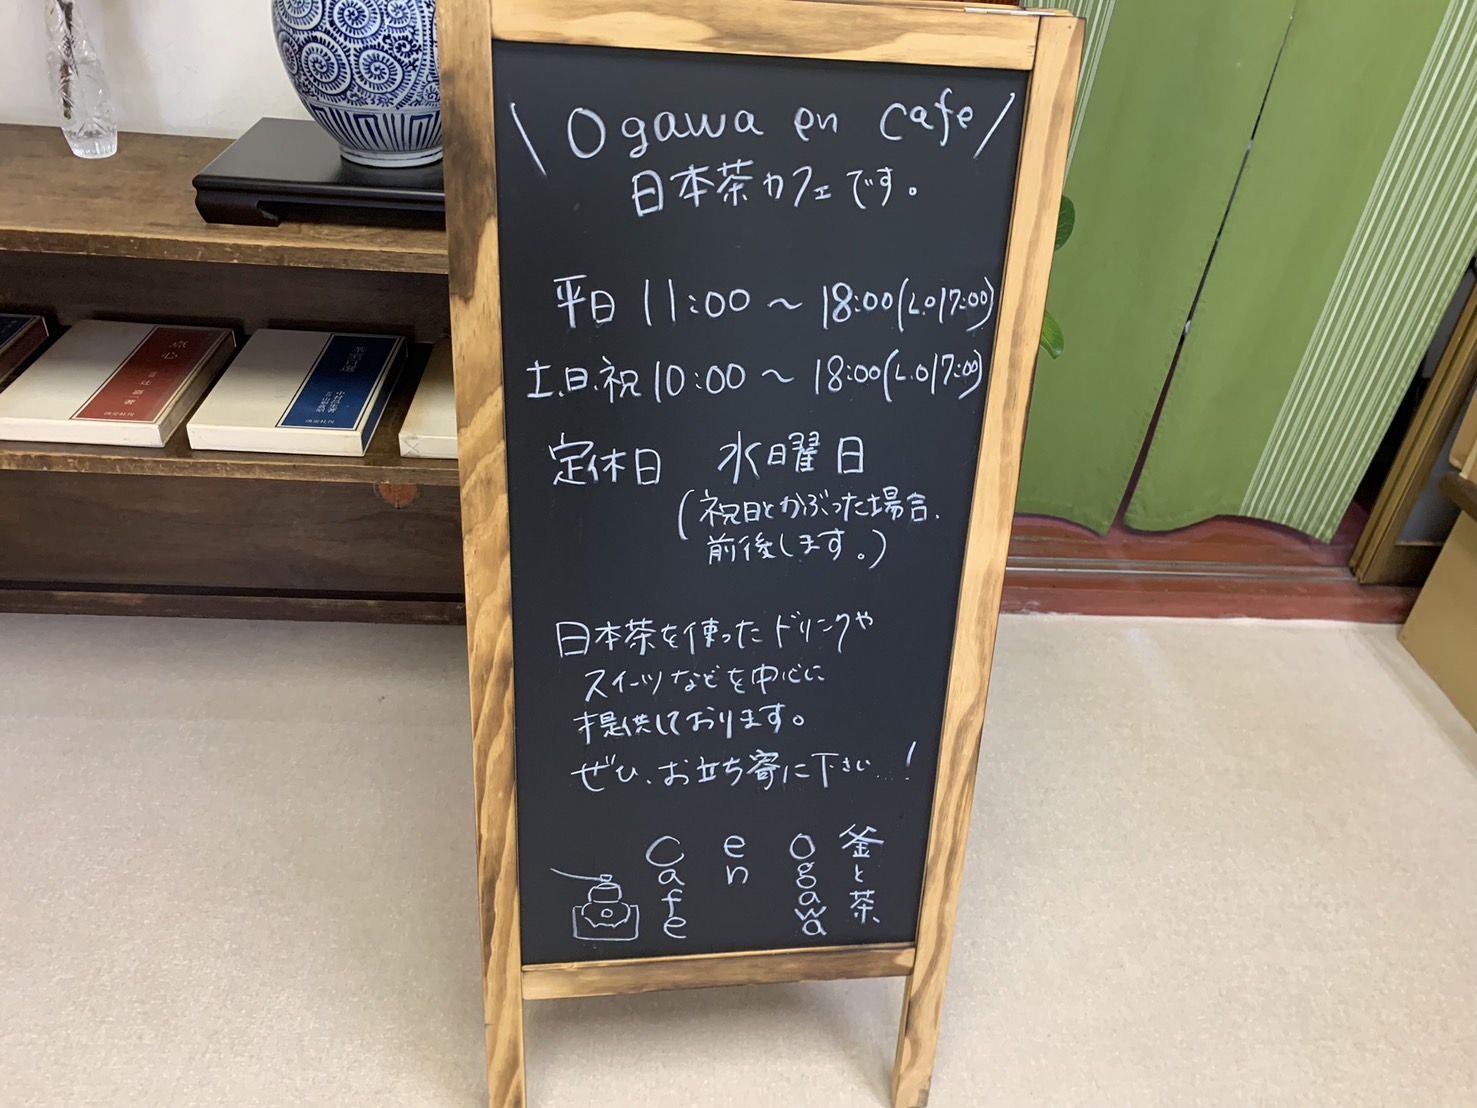 \ Ogawa en cafe /
日本茶カフェです。
平日 11:00 〜 18:00(L.O17:00)
土、日、祝 10:00 〜 18:00(L.O17:00)
定休日 水曜日
(祝日とかぶった場合、
前後します。)
日本茶を使ったドリンクや
スイーツなどを中心に
提供しております。
ぜひ、お立ち寄に下さい…!
釜と茶
Ogawa
en
Cafe
点心